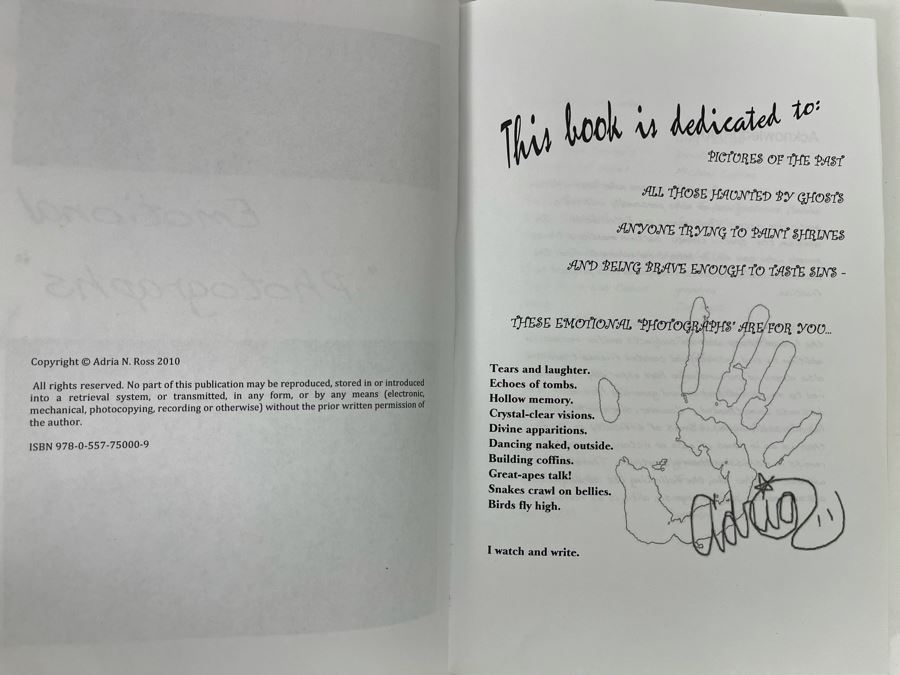 Emotional
Photographs
Copyright © Adria N. Ross 2010
All rights reserved. No part of this publication may be reproduced, stored in or introduced
into a retrieval system, or transmitted, in any form, or by any means (electronic,
mechanical, photocopying, recording or otherwise) without the prior written permission of
the author.
ISBN 978-0-557-75000-9
This book is dedicated to:
PICTURES OF THE PAST
ALL THOSE HAUNTED BY GHOSTS
ANYONE TRYING TO PAINT SHRINES
AND BEING BRAVE ENOUGH TO TASTE SINS -
THESE EMOTIONAL "PHOTOGRAPHS" ARE FOR YOU...
Tears and laughter.
Echoes of tombs.
Hollow memory.
Crystal-clear visions.
Divine apparitions.
Dancing naked, outside.
Building coffins.
Great-apes talk!
Snakes crawl on bellies.
Birds fly high.
I watch and write.
adria